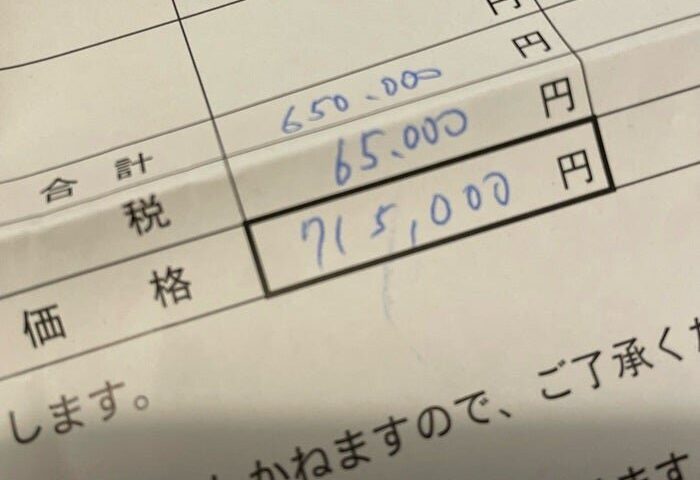 円
円
合計 650.000 円
税 65.000 円
価格 715,000 円
します。
かねますので、ご了承くだ
ます